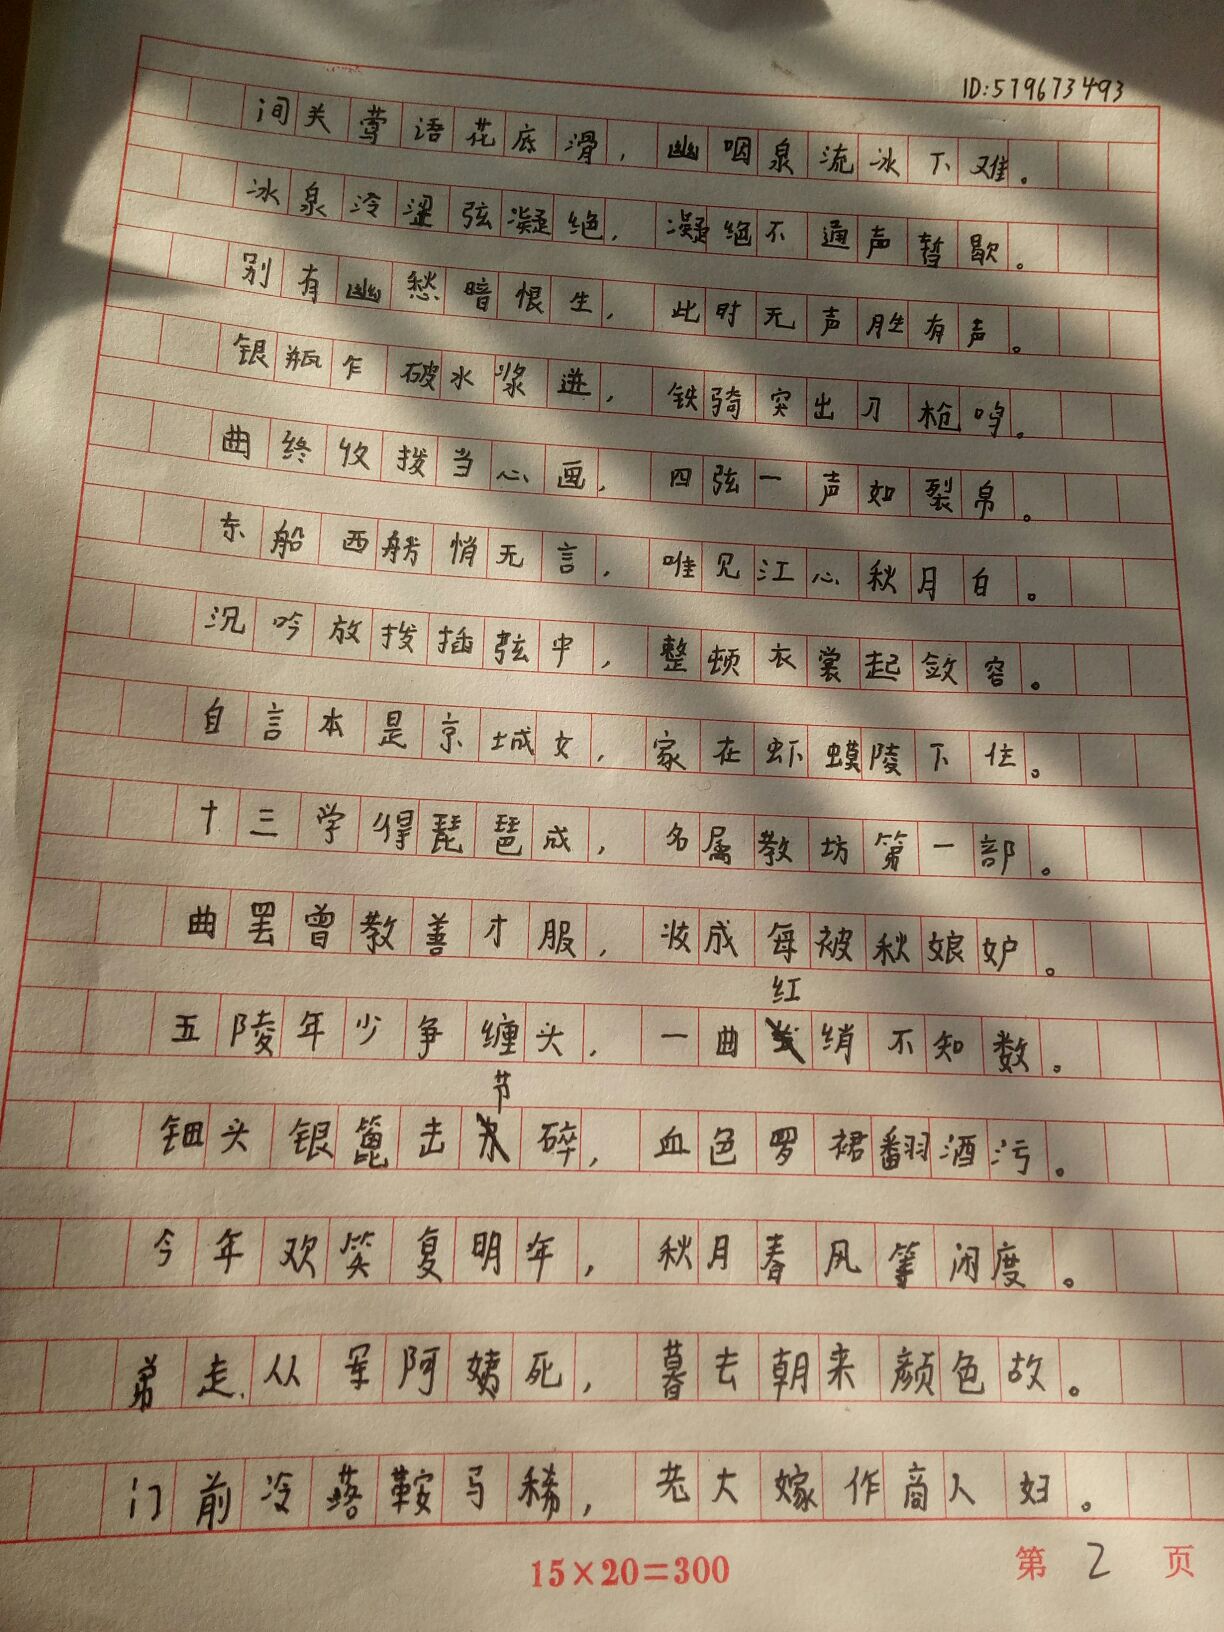 ID:579673493
间关莺语花底滑，幽咽泉流冰下难。
冰泉冷涩弦凝绝，凝绝不通声暂歇。
别有幽愁暗恨生，此时无声胜有声。
银瓶乍破水浆迸，铁骑突出刀枪鸣。
曲终收拨当心画，四弦一声如裂帛。
东船西舫悄无言，唯见江心秋月白。
沉吟放拨插弦中，整顿衣裳起敛容。
自言本是京城女，家在虾蟆陵下住。
十三学得琵琶成，名属教坊第一部。
曲罢曾教善才服，妆成每被秋娘妒。
五陵年少争缠头，一曲红绡不知数。
钿头银篦击节碎，血色罗裙翻酒污。
今年欢笑复明年，秋月春风等闲度。
弟走从军阿姨死，暮去朝来颜色故。
门前冷落鞍马稀，老大嫁作商人妇。
15×20=300
第 2 页